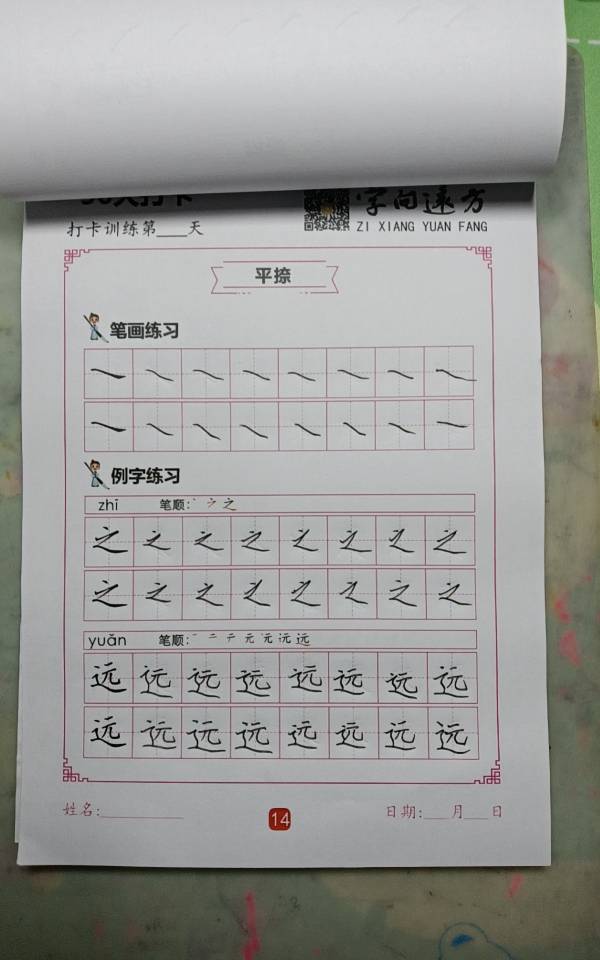 天打卡
字向远方
打卡训练第___天
ZI XIANG YUAN FANG
平捺
笔画练习
㇏ ㇏ ㇏ ㇏ ㇏ ㇏ ㇏ ㇏
㇏ ㇏ ㇏ ㇏ ㇏ ㇏ ㇏ ㇏
例字练习
zhī 笔顺:
之 之 之 之 之 之 之 之
之 之 之 之 之 之 之 之
yuǎn 笔顺:
远 远 远 远 远 远 远 远
远 远 远 远 远 远 远 远
姓名:__________ 14 日期:___月___日